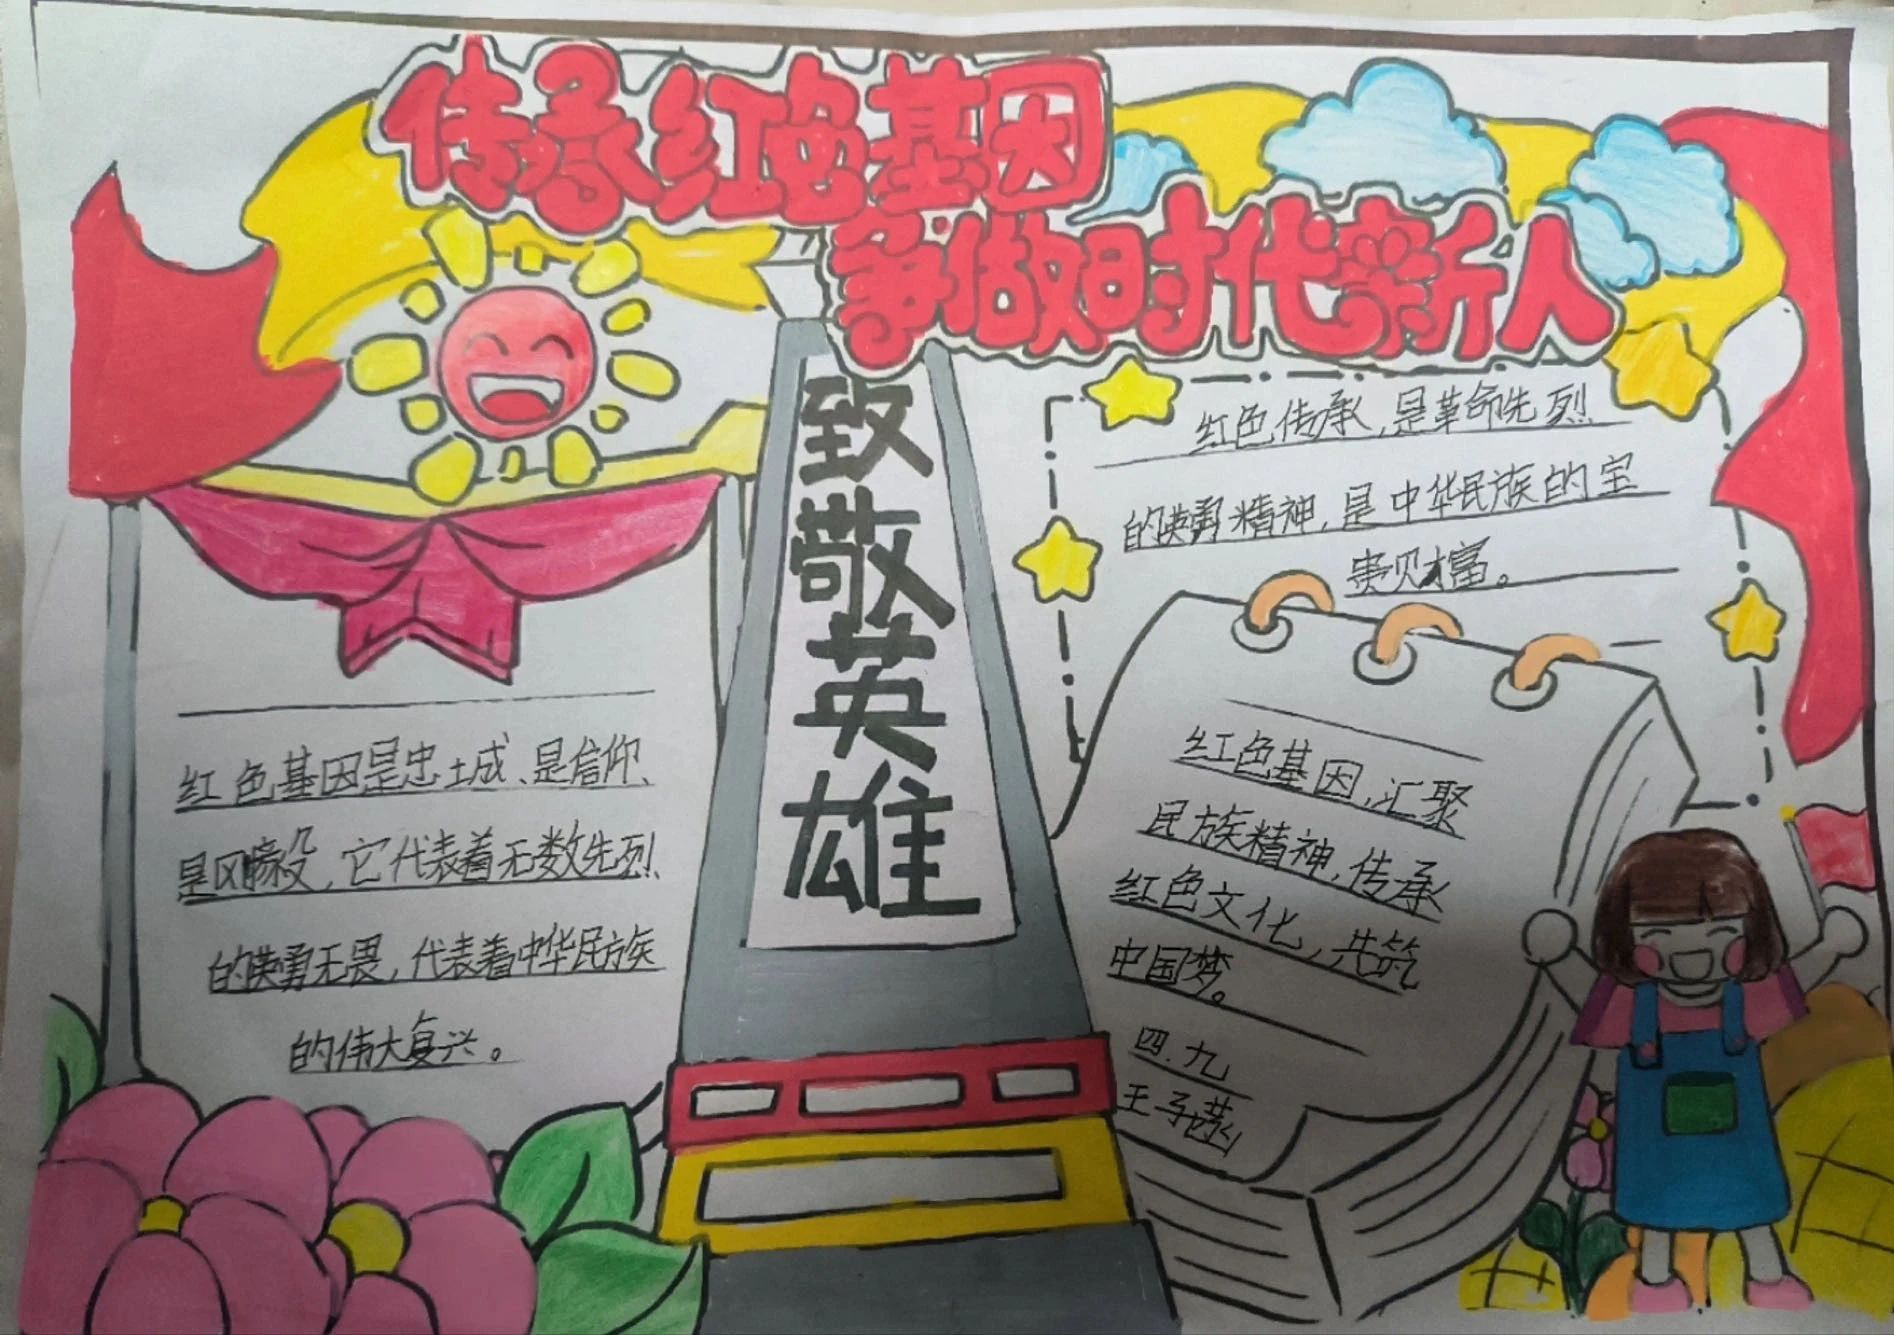 传承红色基因
争做时代新人
致敬英雄
红色基因是忠诚、是信仰、
是风 它代表着无数先烈
的英勇无畏,代表着中华民族
的伟大复兴。
红色传承,是革命先烈
的英勇精神,是中华民族的宝
贵财富。
红色基因,汇聚
民族精神,传承
红色文化,共筑
中国梦。
四.九
王子